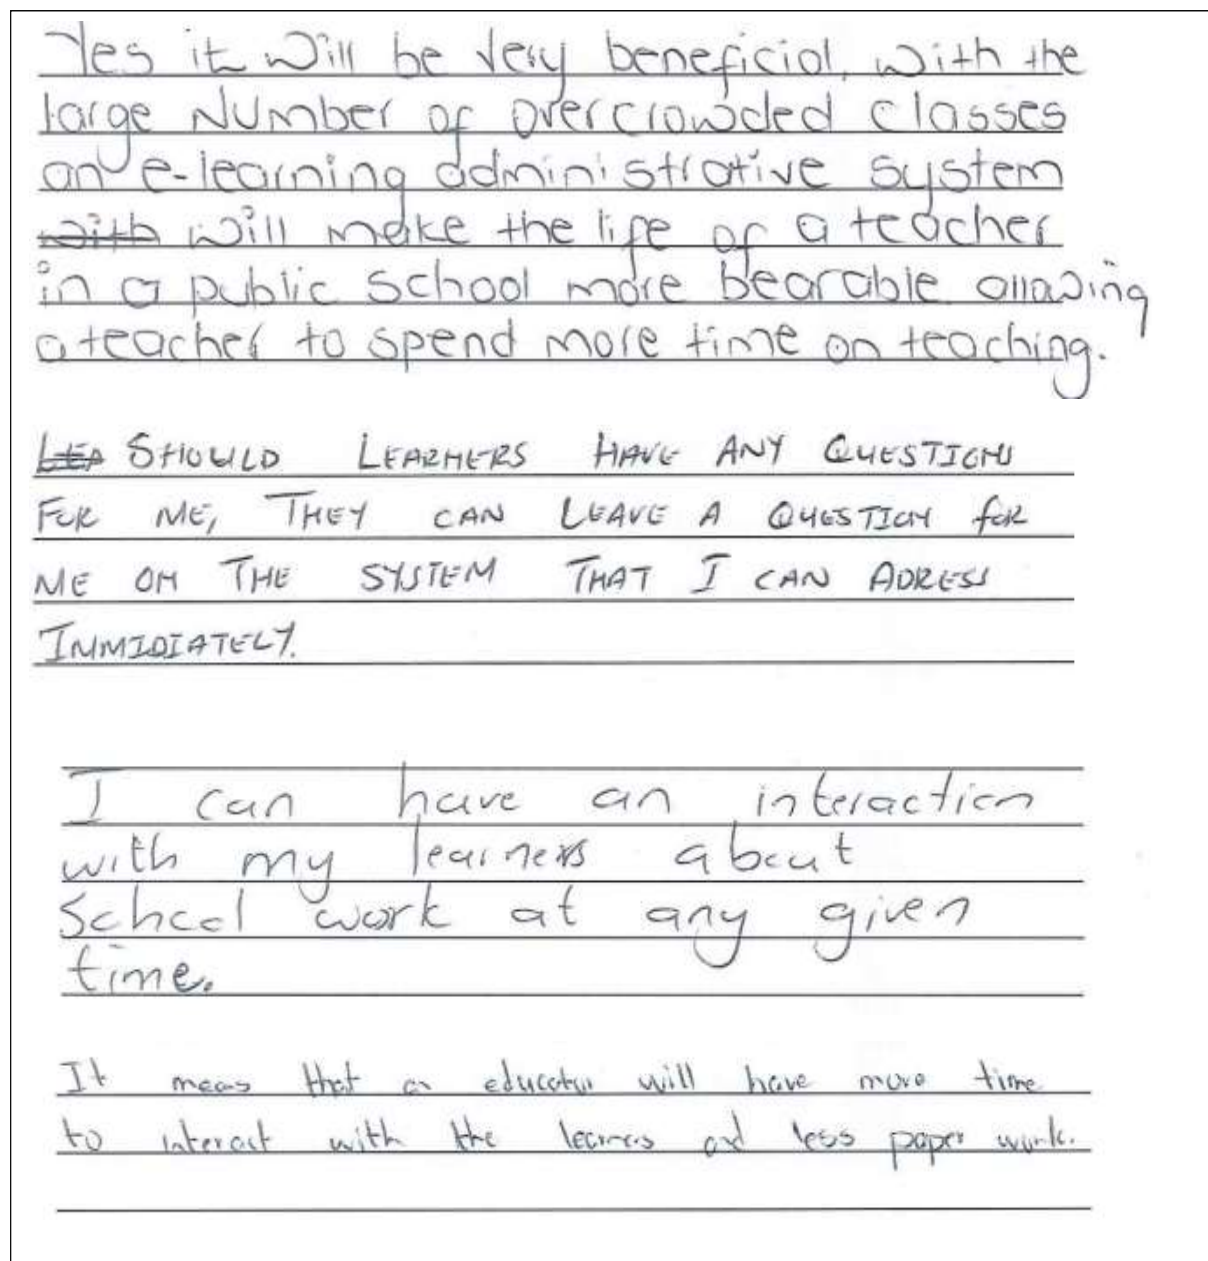 Yes it will be very beneficial, with the
large Number of overcrowded classes
an e-learning administrative system
with will make the life of a teacher
in a public school more bearable allowing
a teacher to spend more time on teaching.
LEA SHOULD LEARNERS HAVE ANY QUESTIONS
FOR ME, THEY CAN LEAVE A QUESTION for
ME ON THE SYSTEM THAT I CAN ADRESS
IMMIDIATELY.
I can have an interaction
with my learners about
School work at any given
time.
It means that a educator will have more time
to interact with the learners and less paper work.